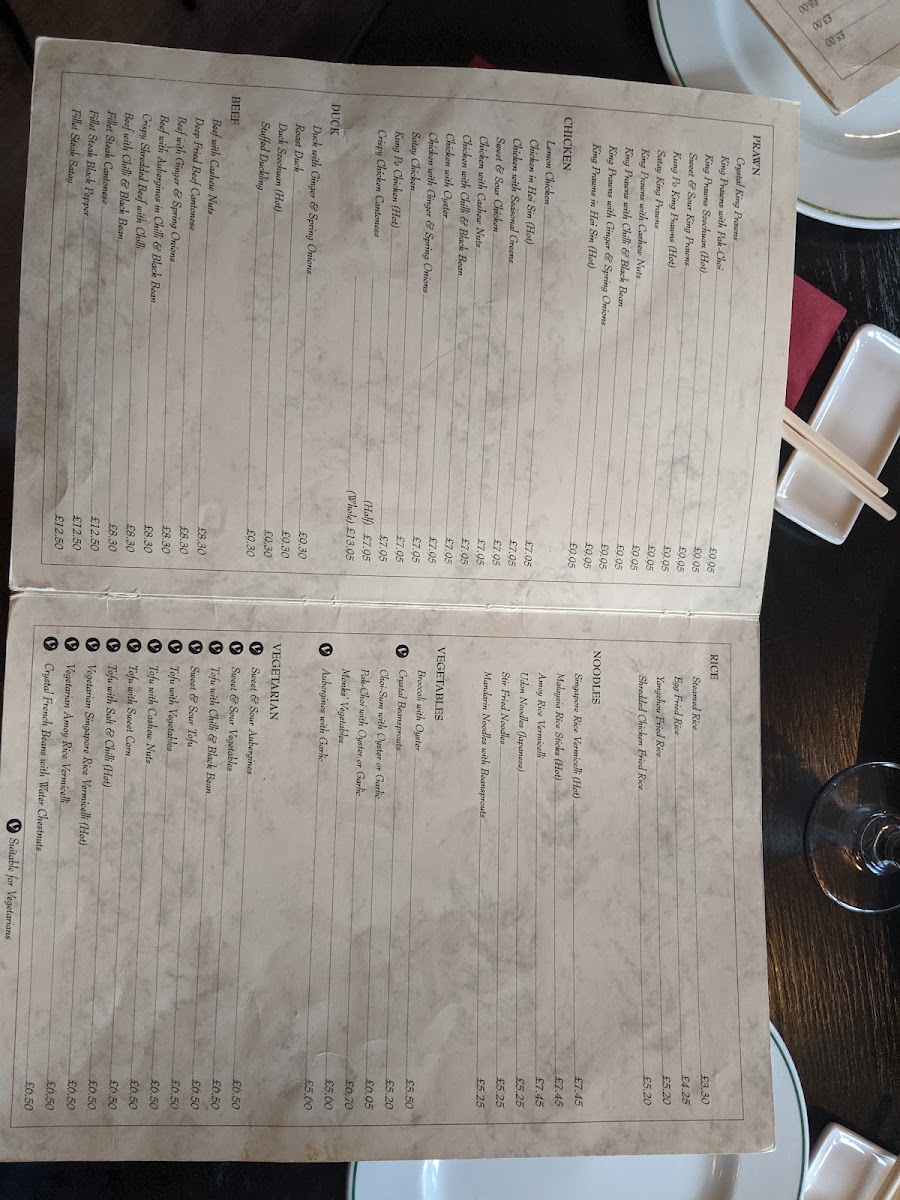 PRAWN
Crystal King Prawns £9.95
King Prawns with Pak-Choi £9.95
King Prawns Szechuan (Hot) £9.95
Sweet & Sour King Prawns £9.95
Kung Po King Prawns (Hot) £9.95
Satay King Prawns £9.95
King Prawns with Cashew Nuts £9.95
King Prawns with Chilli & Black Bean £9.95
King Prawns with Ginger & Spring Onions £9.95
King Prawns in Hoi Sin (Hot) £9.95
CHICKEN
Lemon Chicken £7.95
Chicken in Hoi Sin (Hot) £7.95
Chicken with Seasonal Greens £7.95
Sweet & Sour Chicken £7.95
Chicken with Cashew Nuts £7.95
Chicken with Chilli & Black Bean £7.95
Chicken with Oyster £7.95
Chicken with Ginger & Spring Onions £7.95
Satay Chicken £7.95
Kung Po Chicken (Hot) £7.95
Crispy Chicken Cantonese (Half) £7.95
(Whole) £13.95
DUCK
Duck with Ginger & Spring Onions £9.30
Roast Duck £9.30
Duck Szechuan (Hot) £9.30
Stuffed Duckling £9.30
BEEF
Beef with Cashew Nuts £8.30
Deep Fried Beef Cantonese £8.30
Beef with Ginger & Spring Onions £8.30
Beef with Aubergines in Chilli & Black Bean £8.30
Crispy Shredded Beef with Chilli £8.30
Beef with Chilli & Black Bean £8.30
Fillet Steak Cantonese £12.50
Fillet Steak Black Pepper £12.50
Fillet Steak Satay £12.50
RICE
Steamed Rice £3.30
Egg Fried Rice £4.25
Yangzhou Fried Rice £5.20
Shredded Chicken Fried Rice £5.20
NOODLES
Singapore Rice Vermicelli (Hot) £7.45
Malaysia Rice Sticks (Hot) £7.45
Amoy Rice Vermicelli £7.45
Udon Noodles (Japanese) £5.25
Stir Fried Noodles £5.25
Mandarin Noodles with Beansprouts £5.25
VEGETABLES
Broccoli with Oyster £5.50
V Crystal Beansprouts £5.20
Choi-Sum with Oyster or Garlic £6.95
Pak-Choi with Oyster or Garlic £6.70
Monks' Vegetables £5.60
V Aubergines with Garlic £5.60
VEGETARIAN
V Sweet & Sour Aubergines £6.50
V Sweet & Sour Vegetables £6.50
V Tofu with Chilli & Black Bean £6.50
V Sweet & Sour Tofu £6.50
V Tofu with Vegetables £6.50
V Tofu with Cashew Nuts £6.50
V Tofu with Sweet Corn £6.50
V Tofu with Salt & Chilli (Hot) £6.50
V Vegetarian Singapore Rice Vermicelli (Hot) £6.50
V Vegetarian Amoy Rice Vermicelli £6.50
V Crystal French Beans with Water Chestnuts £6.50
V Suitable for Vegetarians